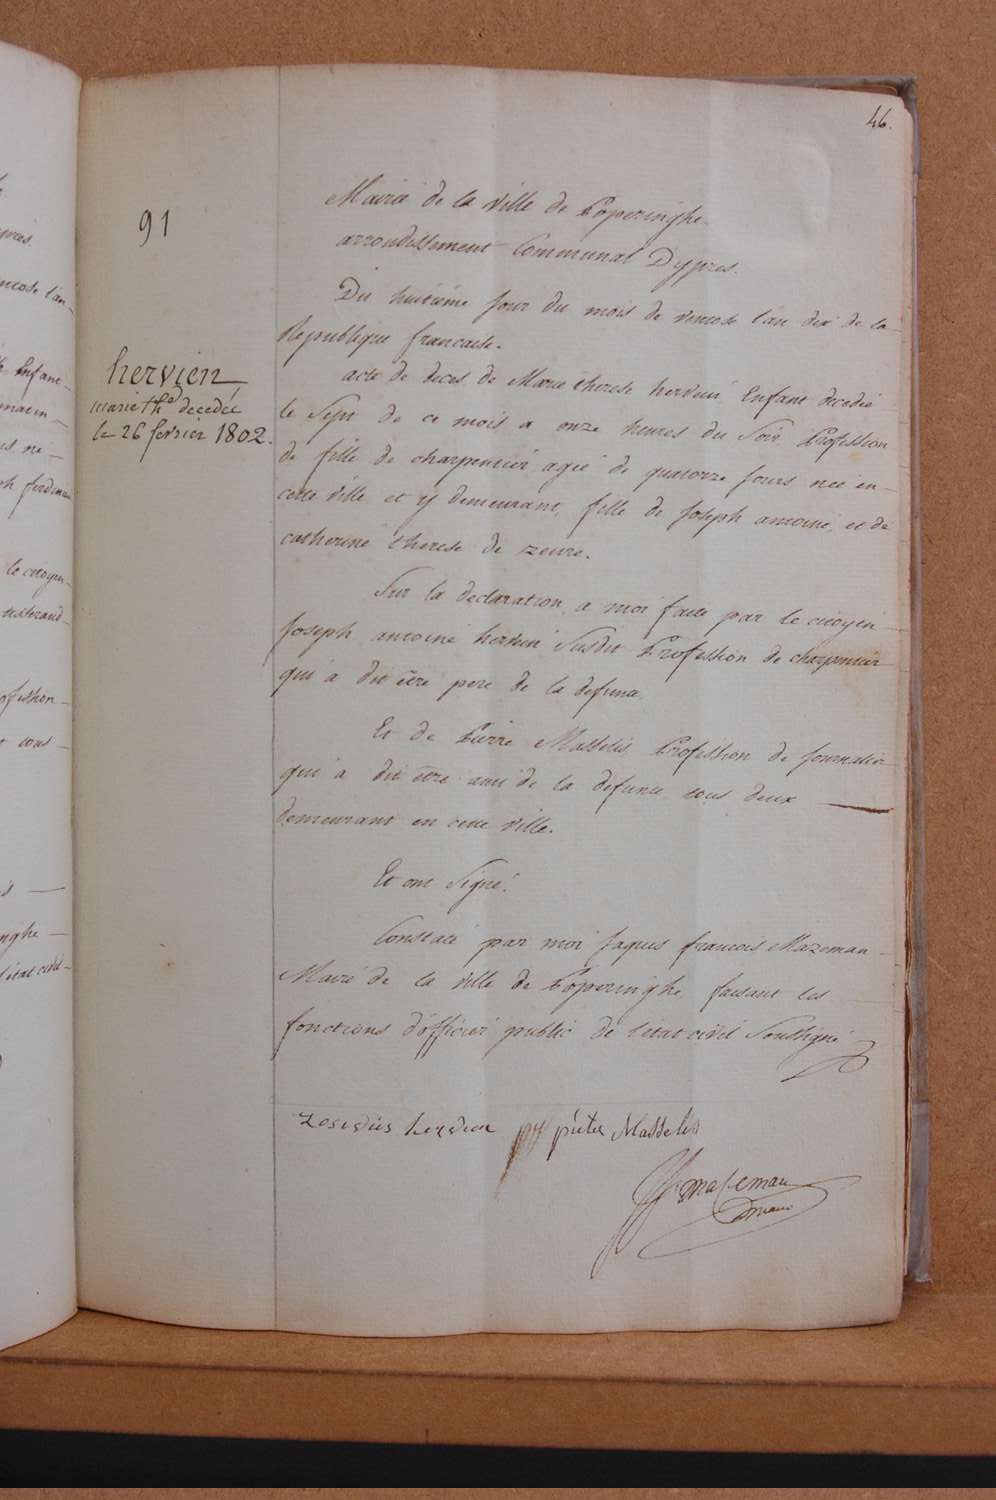 46.
91
Mairie de la ville de Poperinghe
arrondissement Communal Dypres.
Du huitième jour du mois de ventose l'an dix de la
Republique francaise.
hervien
marie the decedée
le 26 fevrier 1802.
acte de deces de Marie therese hervein Enfant decedée
le Sept de ce mois a onze heures du Soir Profession
de fille de charpentier agée de quatorze jours née en
cette ville et y demeurant, fille de Joseph antoine, et de
catherine therese de zeure.
Sur la declaration a moi faite par le citoyen
Joseph antoine hervein Susdit Profession de charpentier
qui a dit être pere de la defunte.
Et de Pierre Masselis Profession de journalier
qui a dit être ami de la defunte tous deux
demeurant en cette ville.
Et ont Signé.
Constaté par moi Jaques francois Mazeman
Maire de la ville de Poperinghe, faisant les
fonctions d'officier public de l'état civil Soussigné
hervien pieter Masselis
Mazeman
maire